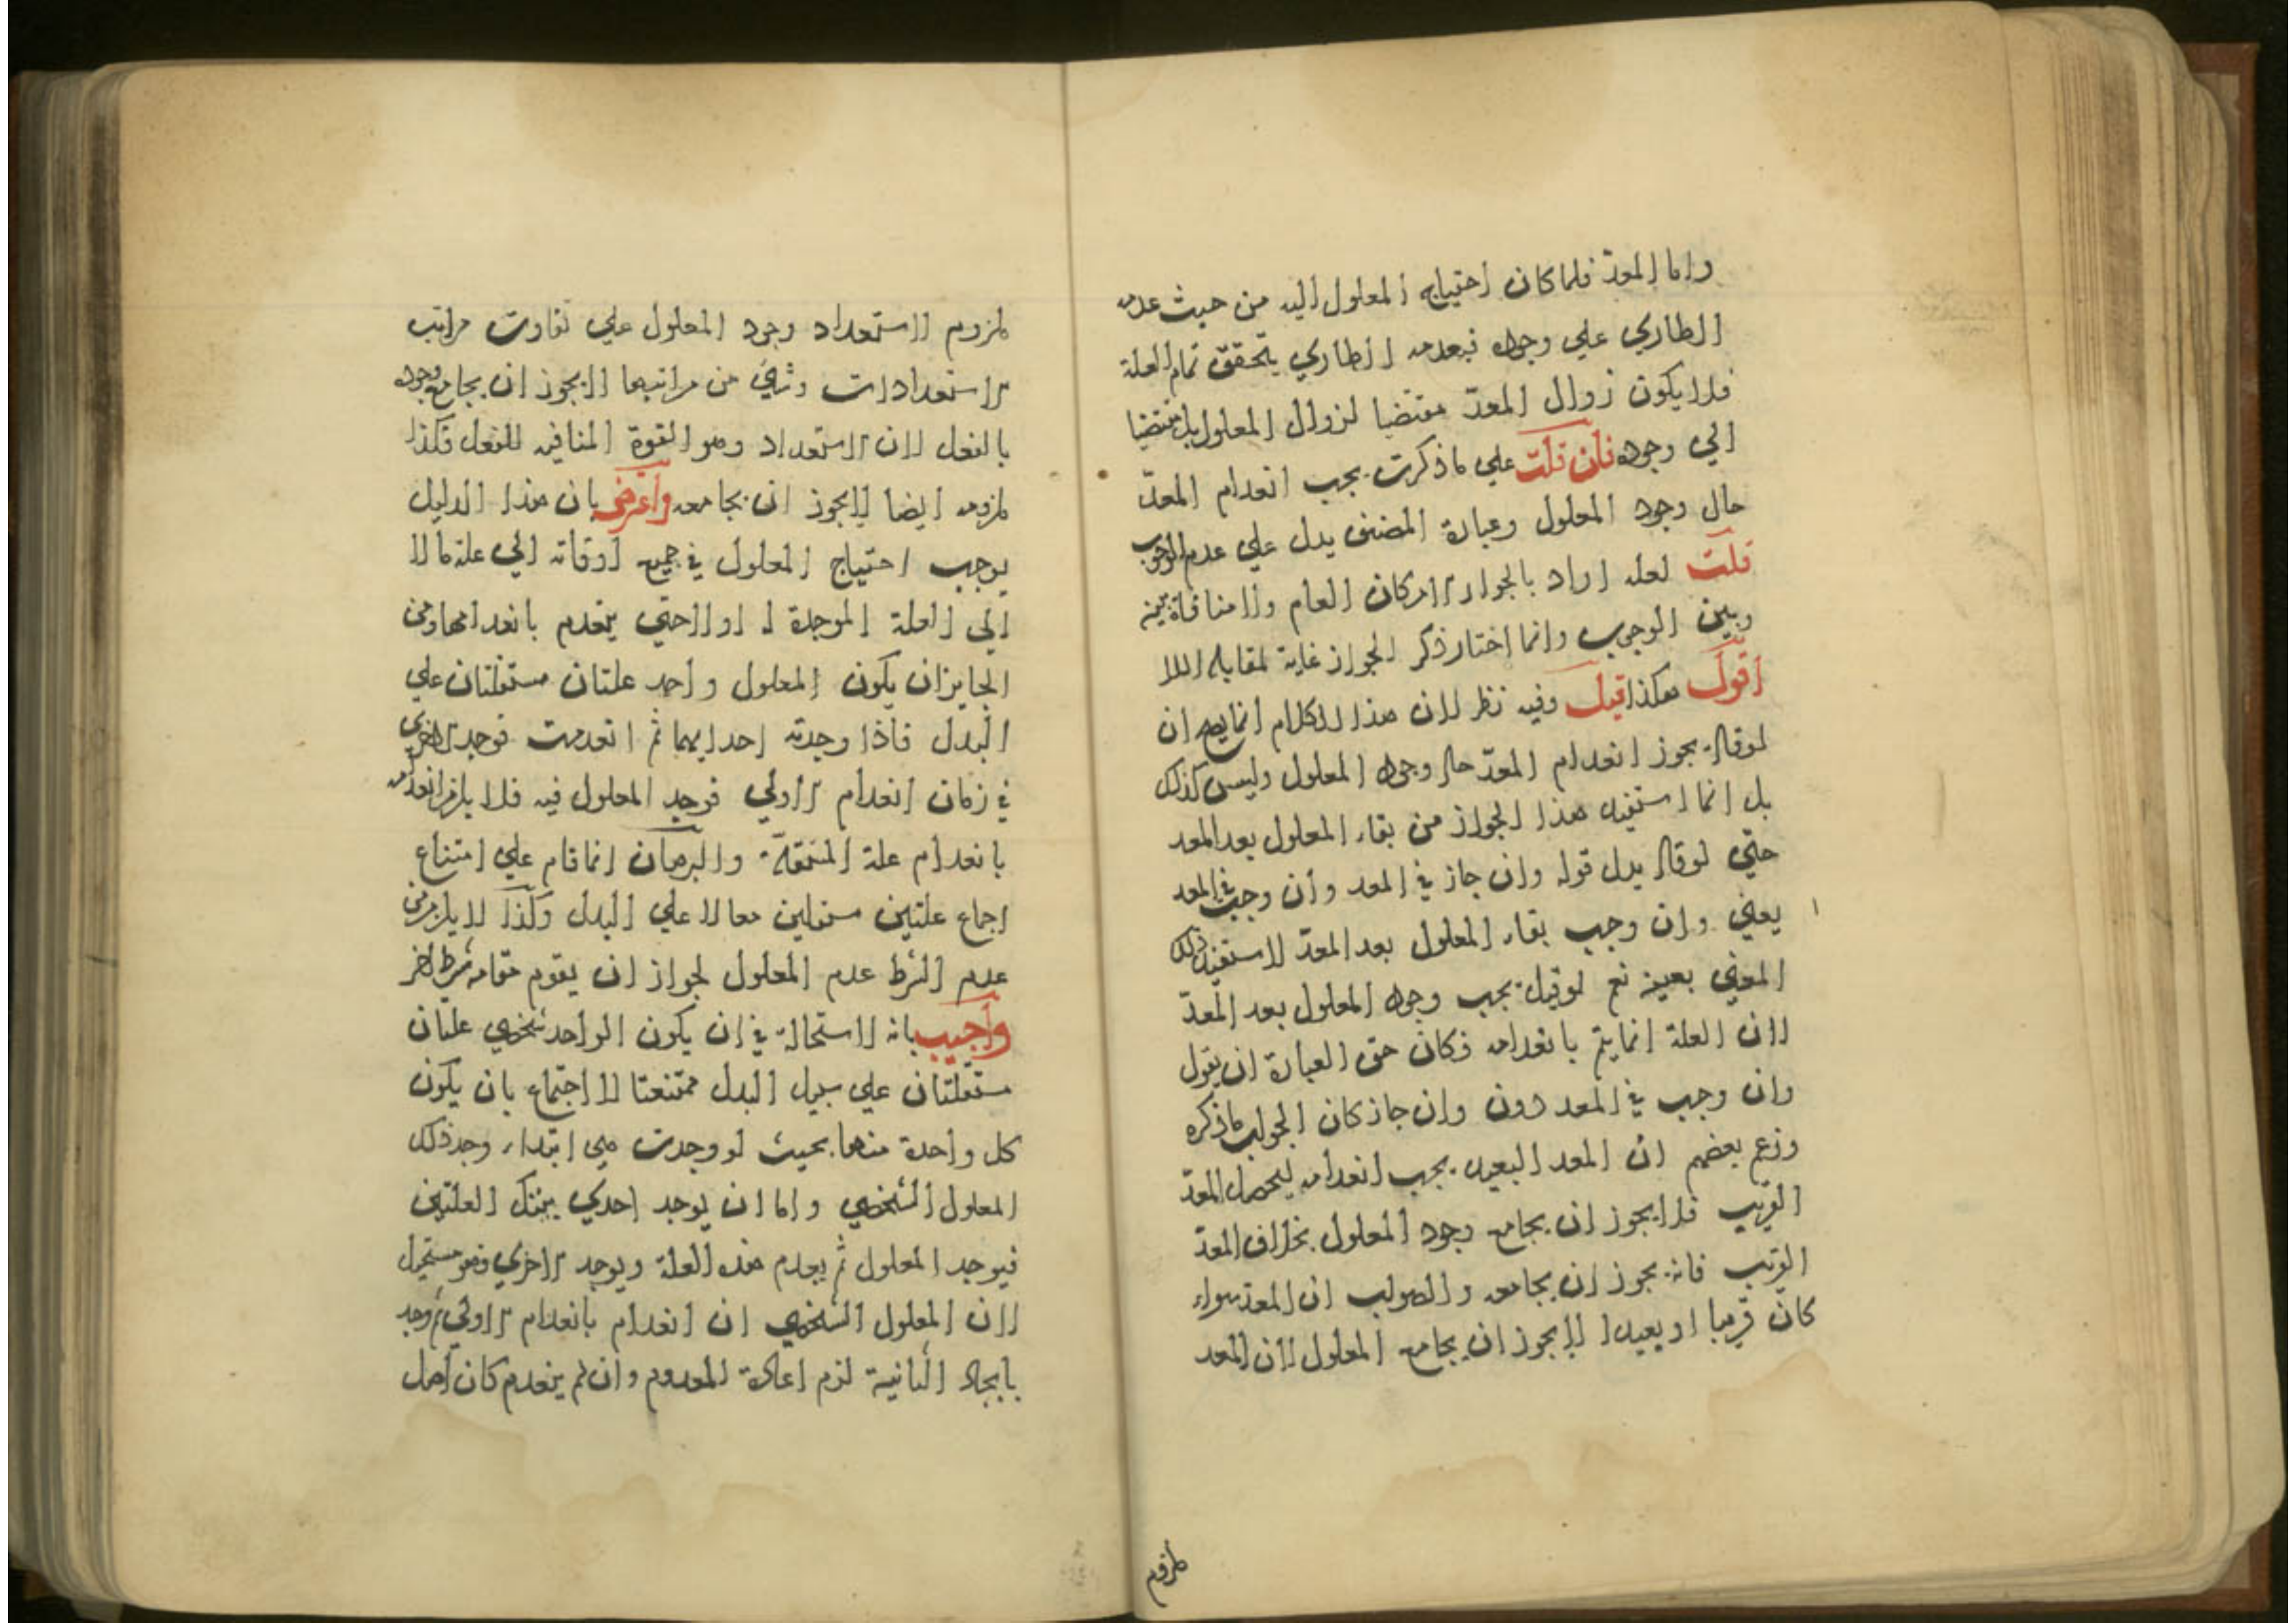 واما المعدّ فلما كان احتياج المعلول اليه من حيث عدمه
الطاري علي وجوده فبعدمه الطاري يتحقق تمام العلة
فلا يكون زوال المعدّ مقتضيا لزوال المعلول بل مقتضيا
الي وجوده فان قلت علي ما ذكرت يجب انعدام المعدّ
حال وجود المعلول وعبارة المصنف يدل علي عدم الوجوب
قلت لعله اراد بالجواز الامكان العام ولا منافاة بينه
وبين الوجوب وانما اختار ذكر الجواز غاية لمقابلة اللا
اقول هكذا قيل وفيه نظر لان هذا الكلام انما يصح ان
لو قال يجوز انعدام المعدّ حال وجود المعلول وليس كذلك
بل انما استفيد هذا الجواز من بقاء المعلول بعد المعد
حتي لو قال بدل قوله وان جاز في المعد وان وجب في المعد
يعني وان وجب بقاء المعلول بعد المعدّ لاستفيد ذلك
المعني بعينه نعم لو قيل يجب وجود المعلول بعد المعدّ
لان العلة انما يتم بانعدامه فكان حق العبارة ان يقول
وان وجب في المعد دون وان جاز كان الجواب ما ذكره
وزعم بعضهم ان المعد البعيد يجب انعدامه ليحصل المعدّ
القريب فلا يجوز ان يجامع وجود المعلول بخلاف المعدّ
القريب فانه يجوز ان يجامعه والصواب ان المعد سواء
كان قريبا او بعيدا لا يجوز ان يجامع المعلول لان المعد
ملزوم
ملزوم لاستعداد وجود المعلول علي تفاوت مراتب
الاستعدادات وشي من مراتبها لا يجوز ان يجامع وجوده
بالفعل لان الاستعداد وهو القوة المنافيه للفعل فكذا
ملزومه ايضا لا يجوز ان يجامعه واعترض بان هذا الدليل
يوجب احتياج المعلول في جميع اوقاته الي علة ما لا
الي العلة الموجدة له اولا حتي ينعدم بانعدامها ومن
الجايز ان يكون المعلول واحد علتان مستقلتان علي
البدل فاذا وجدته احداهما ثم انعدمت فوجد الاخري
في زمان انعدام الاولي فوجد المعلول فيه فلا يلزم انعدامه
بانعدام علة المستقلة والبرهان انما قام علي امتناع
اجماع علتين مستقلين معا لا علي البدل وكذا لا يلزم من
عدم الشرط عدم المعلول لجواز ان يقوم مقامه شرط اخر
واجيب بانه لا استحالة في ان يكون الواحد شخصي علتان
مستقلتان علي سبيل البدل ممتنعتا الاجتماع بان يكون
كل واحدة منهما بحيث لو وجدت هي ابتداء وجد ذلك
المعلول الشخصي واما ان يوجد احدي بينك العلتين
فيوجد المعلول ثم يعدم هذه العلة ويوجد الاخري فهو مستحيل
لان المعلول الشخصي ان انعدام بانعدام الاولي ثم وجد
بايجاد الثانية لزم اعادة المعدوم وان لم ينعدم كان اصل